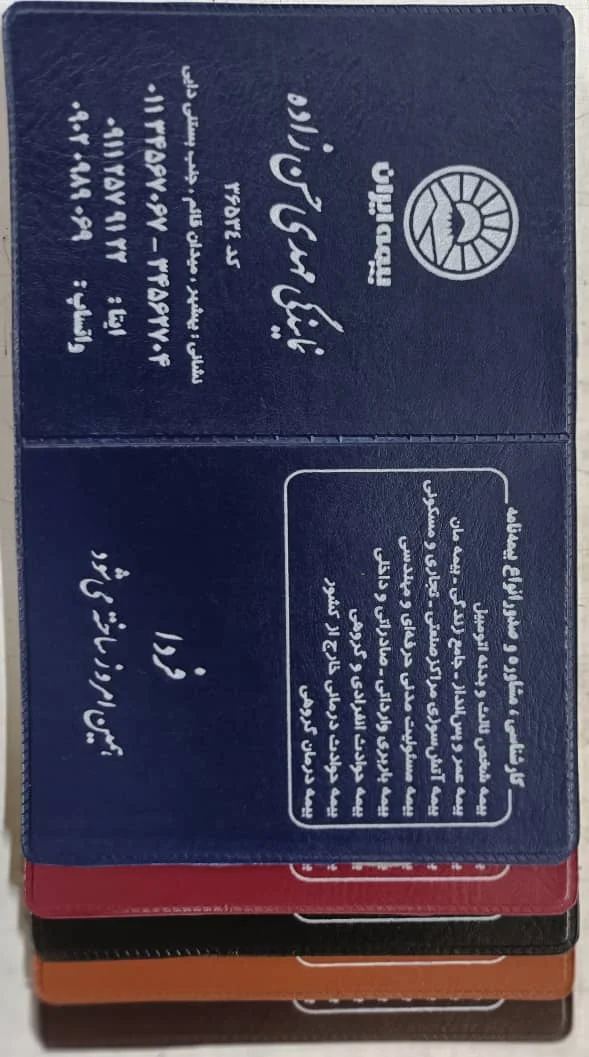 بیمه ایران
نمایندگی مهدی حسن زاده
کد ۳۶۵۳۴
نشانی : بهشهر ، میدان قائم ، جنب بستنی دایی
۰۱۱ ۳۴۵۶۷۰۶۷ - ۳۴۵۶۲۷۰۴
ایتا : ۰۹۱۱ ۲۵۷ ۹۱ ۲۲
واتساپ : ۰۹۰۲ ۰۹۸۹ ۰۶۹
کارشناسی ، مشاوره و صدور انواع بیمه‌نامه
بیمه شخص ثالث و بدنه اتومبیل
بیمه عمر و پس‌انداز - جامع زندگی - بیمه مان
بیمه آتش‌سوزی مراکز صنعتی - تجاری و مسکونی
بیمه مسئولیت مدنی حرفه‌ای و مهندسی
بیمه باربری وارداتی - صادراتی و داخلی
بیمه حوادث انفرادی و گروهی
بیمه حوادث درمانی خارج از کشور
بیمه درمان گروهی
فردا
همین امروز ساخته می شود